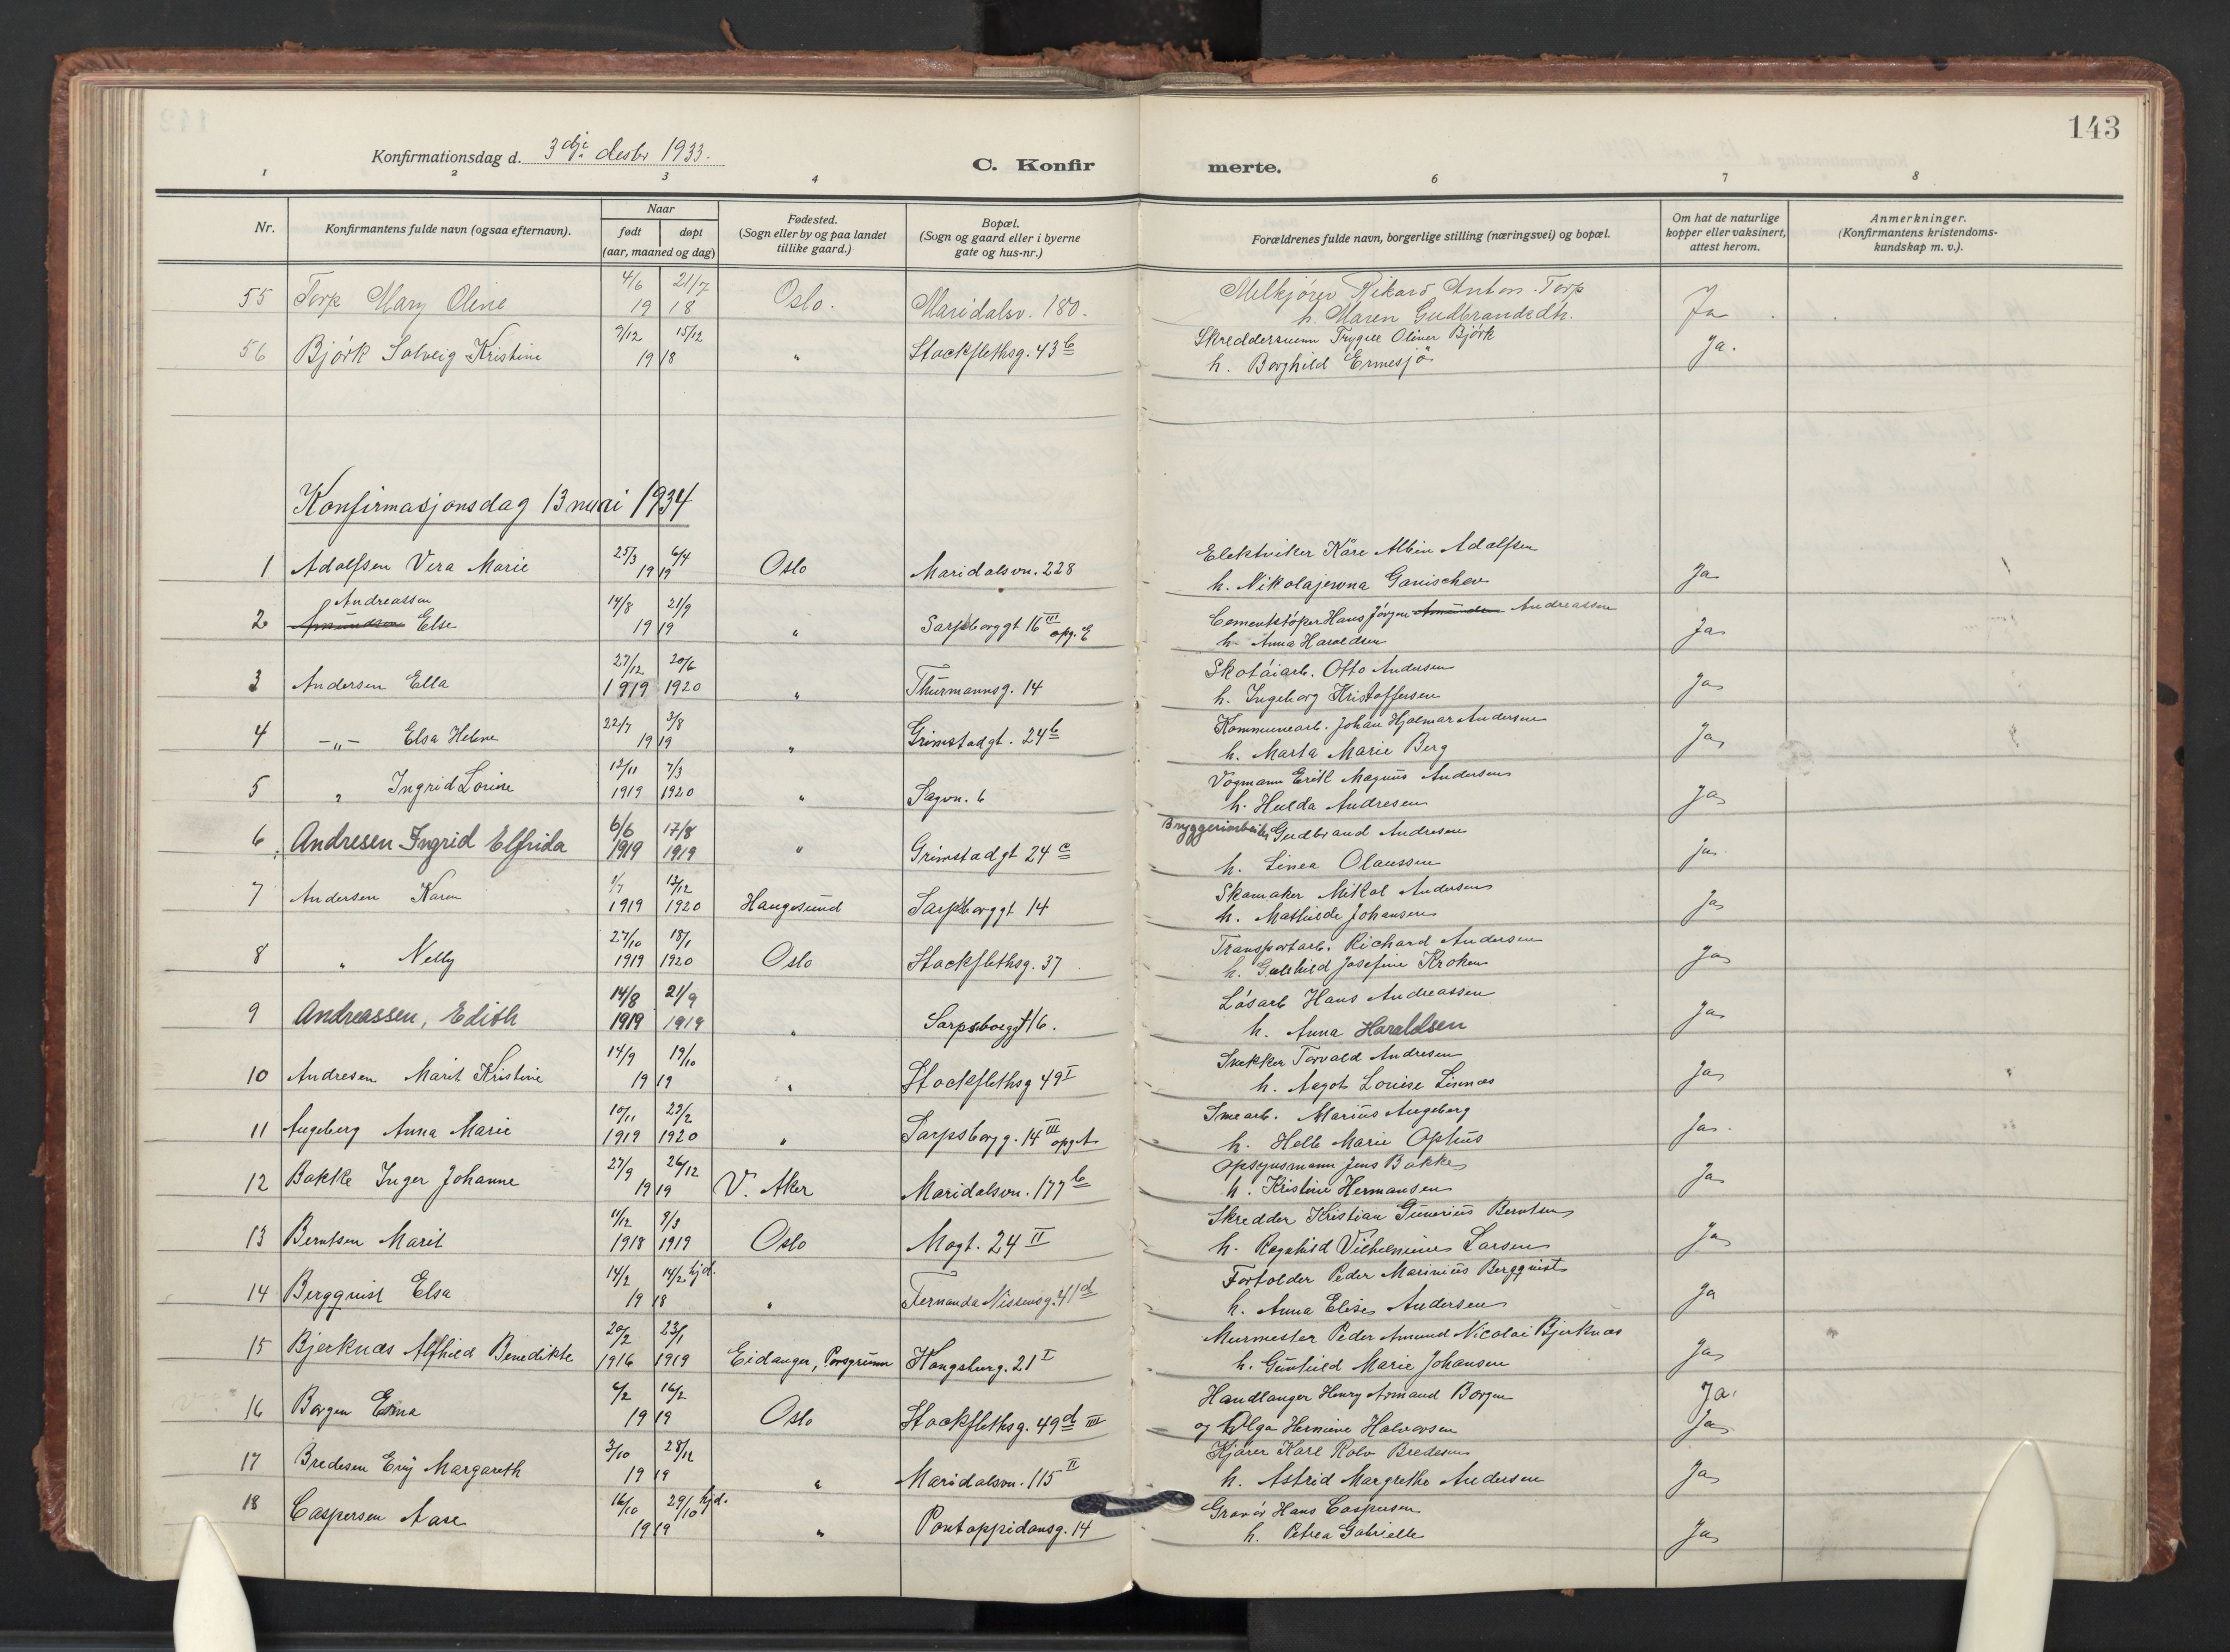 143
Konfirmationsdag d. 3dje desbr 1933.
C. Konfirmerte.
1 2 3 4 6 7 8
Nr. Konfirmantens fulde navn (ogsaa efternavn). Naar født døpt (aar, maaned og dag) Fødested. (Sogn eller by og paa landet tillike gaard.) Bopæl. (Sogn og gaard eller i byerne gate og hus-nr.) Forældrenes fulde navn, borgerlige stilling (næringsvei) og bopæl. Om hat de naturlige kopper eller vaksinert, attest herom. Anmerkninger. (Konfirmantens kristendomskundskap m. v.).
55 Torp Mary Oline 4/6 21/7 1918 Oslo. Maridalsv. 180. Melkjører Rikard Anton Torp Ja
h. Maren Gudbrandsdtr.
56 Björk Solveig Kristine 9/12 15/12 1918 " Stockflethsg. 43b Skreddersvenn Trygve Oliver Björk Ja.
h. Borghild Ermesjö
Konfirmasjonsdag 13 mai 1934
1 Adolfsen Vera Marie 25/3 6/4 1919 Oslo Maridalsvn. 228 Elektriker Kåre Albin Adolfsen Ja
h. Nikolajewna Ganischew
2 Amundsen Andreassen Else 14/8 21/9 1919 " Sarpsborggt 16 III opg. E Cementstøper Hans Jørgen Amundsen Andreassen Ja
h. Anna Haraldsen
3 Andersen Ella 27/12 1919 20/6 1920 " Thurmannsg. 14 Skotøiarb. Otto Andersen Ja
h. Ingeborg Kristoffersen
4 -"- Elsa Helene 22/7 3/8 1919 " Grimstadgt. 24b Kommunearb. Johan Hjalmar Andersen Ja
h. Marta Marie Berg
5 " Ingrid Louise 12/11 1919 7/3 1920 " Sagvn. 6 Vogmann Erik Magnus Andersen Ja
h. Hulda Andresen
6 Andresen Ingrid Elfrida 6/6 1919 17/8 1919 " Grimstadgt 24c Bryggeriarbeider Gudbrand Andresen ja
h. Linea Olaussen
7 Andersen Karen 1/7 1919 12/12 1920 Haugesund Sarpsborggt 14 Skomaker Mikal Andersen Ja
h. Mathilde Johansen
8 " Nelly 27/10 1919 18/1 1920 Oslo Stockflethsg. 37 Transportarb. Richard Andersen Ja
h. Josefine Kroken
9 Andreassen, Edith 14/8 1919 21/9 1919 " Sarpsborggt 16. Løsarb Hans Andreassen Ja
h. Anna Haraldsen
10 Andresen Marit Kristine 14/9 19/10 1919 " Stockflethsg 49 I Snekker Torvald Andresen Ja
h. Aagot Louise Linnæs
11 Augeberg Anna Marie 10/11 1919 29/2 1920 " Sarpsborgg. 14 III opg. A Smearb. Marius Augeberg Ja.
h. Helle Marie Ophus
12 Bakke Inger Johanne 27/9 26/12 1919 V. Aker Maridalsvn. 177b Opsynsmann Jens Bakke Ja
h. Kristine Hermansen
13 Berntsen Marit 11/12 1918 9/3 1919 Oslo Mogt. 24 II Skredder Kristian Gunerius Berntsen Ja
h. Ragnhild Vilhelmine Larsen
14 Bergquist Elsa 14/2 14/2 hjd. 1918 " Fernanda Nissensg. 41d Fortolder Peder Marinius Bergquist Ja
h. Anna Elise Andersen
15 Bjerknæs Alfhild Benedikte 20/2 1916 23/1 1919 Eidanger, Porsgrunn Kongsburg. 21 I Murmester Peder Amund Nicolai Bjerknæs Ja
h. Gunhild Marie Johansen
16 Borgen Erna 6/2 16/2 1919 Oslo Stockflethsg. 49d III Handlanger Henry Armand Borgen Ja.
og Olga Hermine Halvorsen Ja
17 Bredesen Eng Margareth 3/10 28/12 1919 " Maridalsvn. 115 II Kjører Karl Rolv Bredesen Ja
h. Astrid Margrethe Andersen
18 Caspersen Aase 16/10 29/10 hjd. 1919 " Pontoppidansg. 14 Gravør Hans Caspersen Ja
h. Petrea Gabrielle